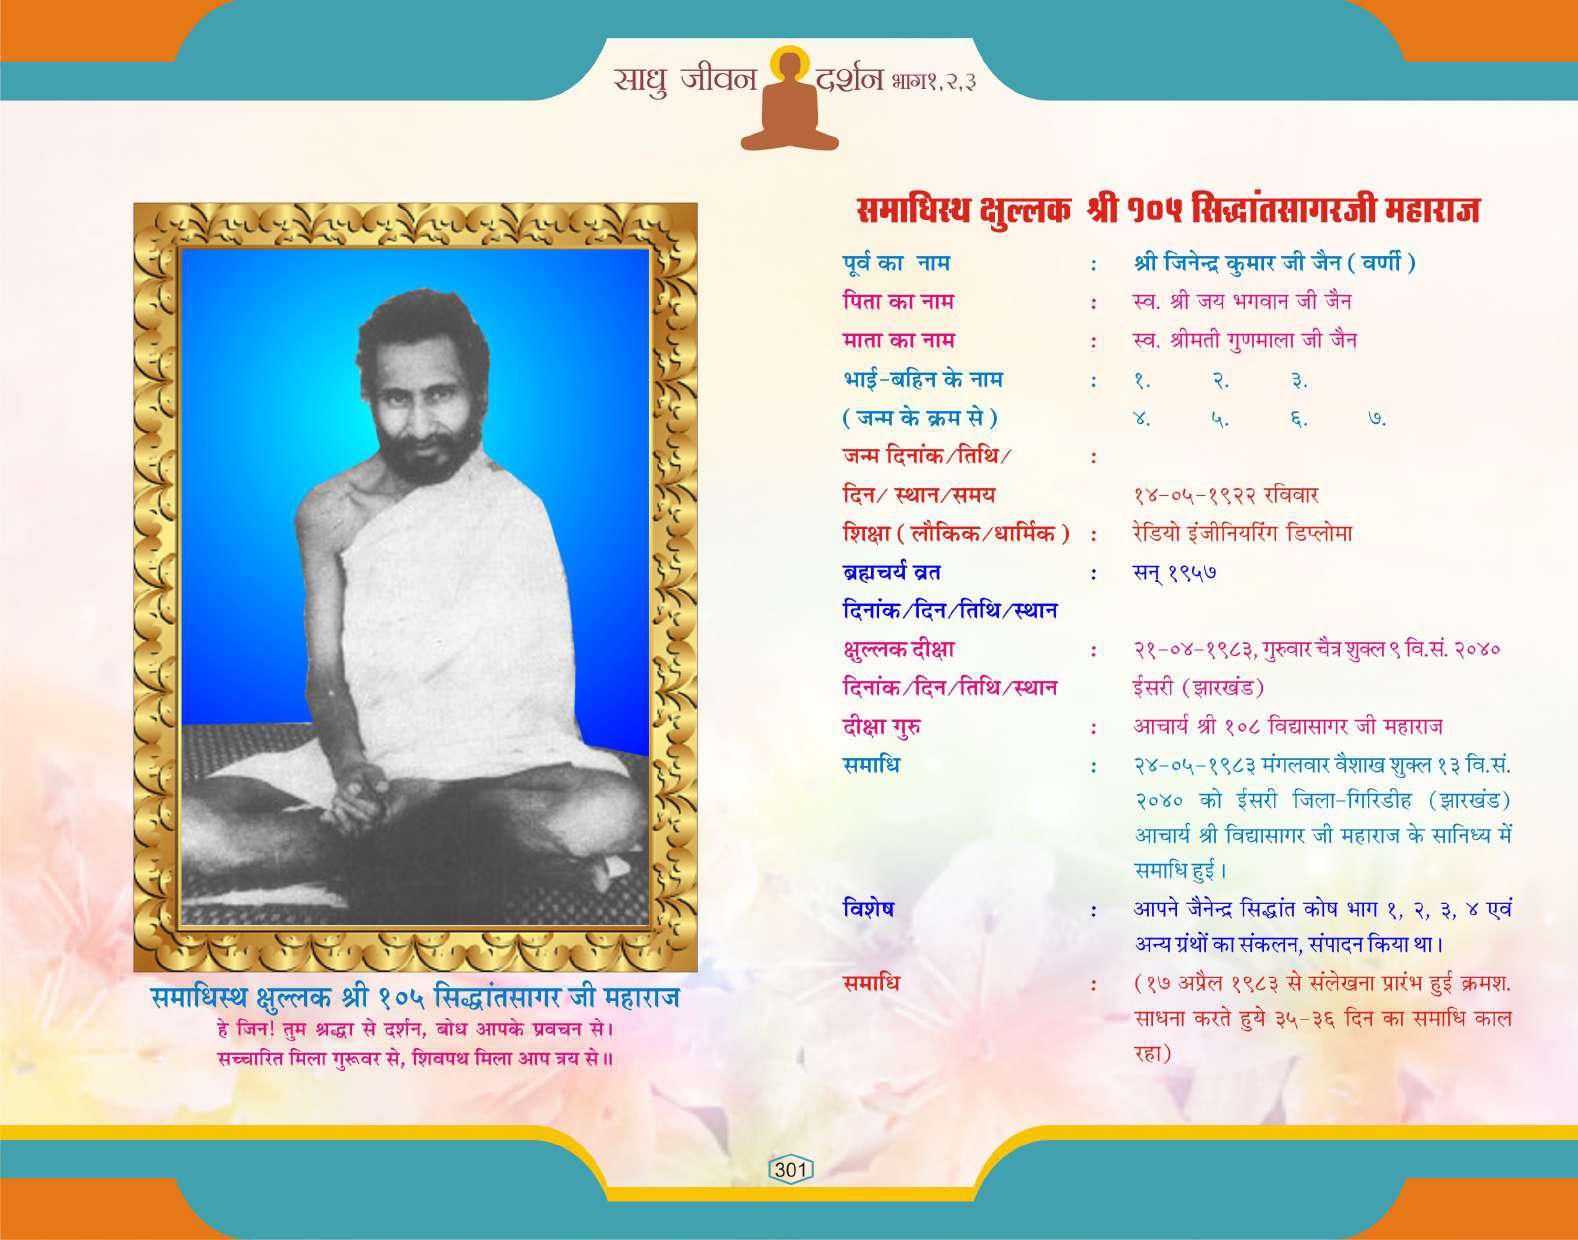 साधु जीवन दर्शन भाग१,२,३
समाधिस्थ क्षुल्लक श्री १०५ सिद्धांतसागरजी महाराज
पूर्व का नाम : श्री जिनेन्द्र कुमार जी जैन ( वर्णी )
पिता का नाम : स्व. श्री जय भगवान जी जैन
माता का नाम : स्व. श्रीमती गुणमाला जी जैन
भाई-बहिन के नाम : १. २. ३.
( जन्म के क्रम से ) ४. ५. ६. ७.
जन्म दिनांक/तिथि/ :
दिन/ स्थान/समय १४-०५-१९२२ रविवार
शिक्षा ( लौकिक/धार्मिक ) : रेडियो इंजीनियरिंग डिप्लोमा
ब्रह्मचर्य व्रत : सन् १९५७
दिनांक/दिन/तिथि/स्थान
क्षुल्लक दीक्षा : २१-०४-१९८३, गुरुवार चैत्र शुक्ल ९ वि.सं. २०४०
दिनांक/दिन/तिथि/स्थान ईसरी (झारखंड)
दीक्षा गुरु : आचार्य श्री १०८ विद्यासागर जी महाराज
समाधि : २४-०५-१९८३ मंगलवार वैशाख शुक्ल १३ वि.सं.
२०४० को ईसरी जिला-गिरिडीह (झारखंड)
आचार्य श्री विद्यासागर जी महाराज के सानिध्य में
समाधि हुई।
विशेष : आपने जैनेन्द्र सिद्धांत कोष भाग १, २, ३, ४ एवं
अन्य ग्रंथों का संकलन, संपादन किया था।
समाधि : (१७ अप्रैल १९८३ से संलेखना प्रारंभ हुई क्रमश.
साधना करते हुये ३५-३६ दिन का समाधि काल
रहा)
समाधिस्थ क्षुल्लक श्री १०५ सिद्धांतसागर जी महाराज
हे जिन! तुम श्रद्धा से दर्शन, बोध आपके प्रवचन से।
सच्चारित मिला गुरूवर से, शिवपथ मिला आप त्रय से॥
301